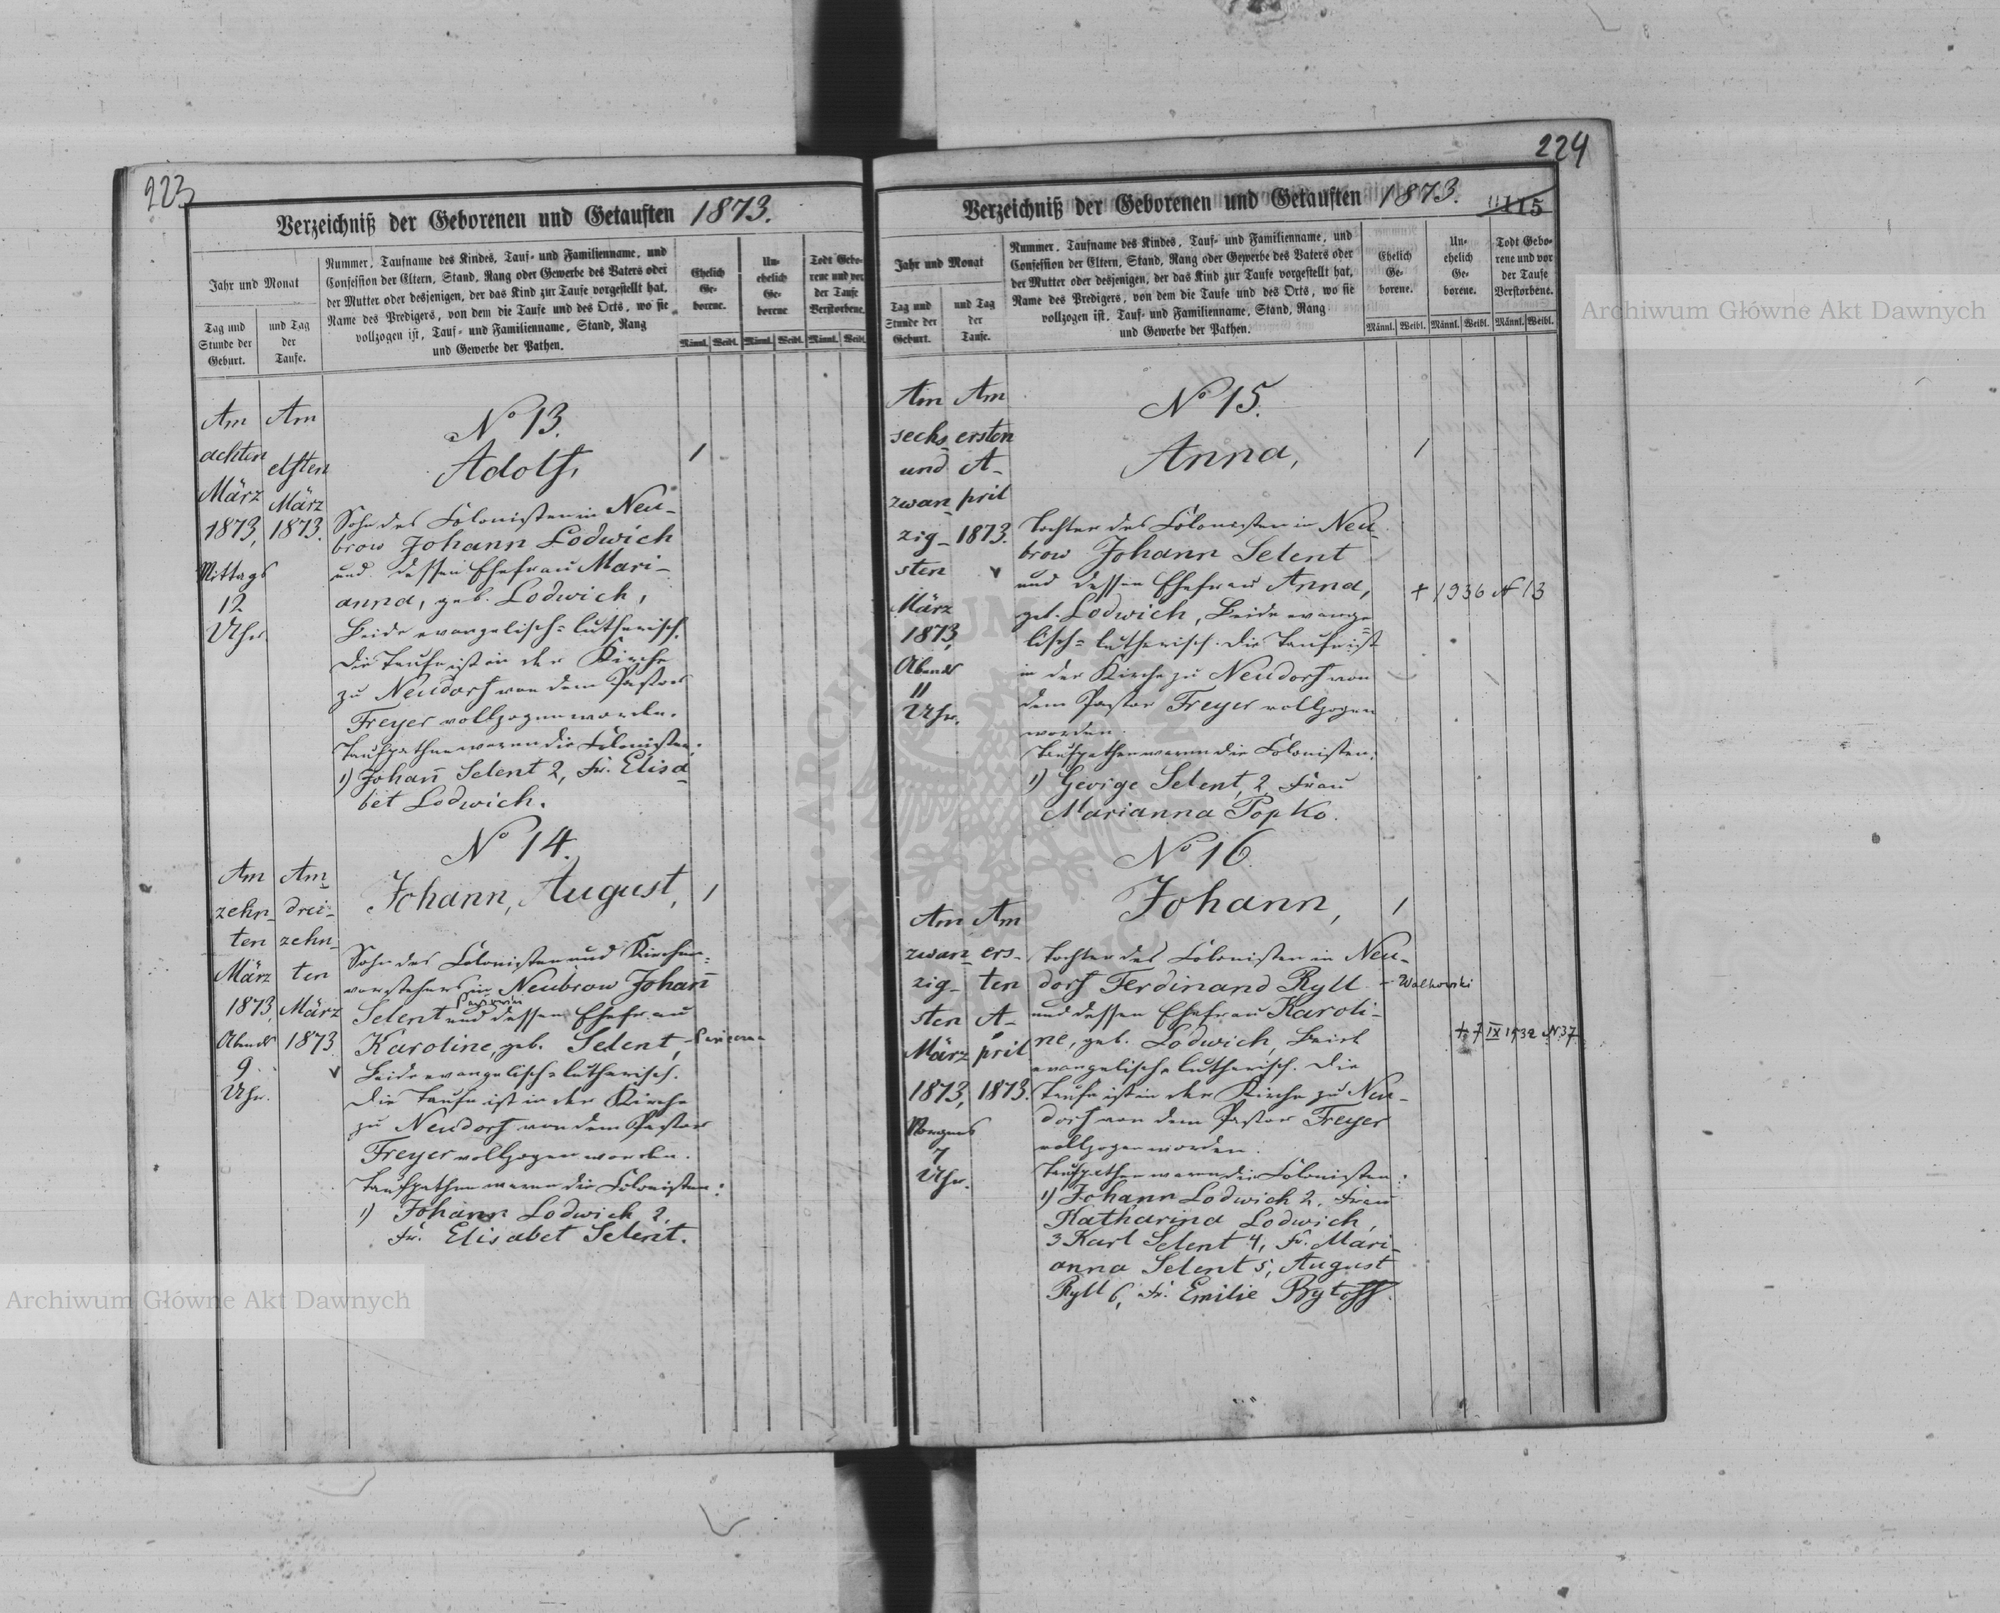 223
Verzeichniß der Geborenen und Getauften 1873.
Jahr und Monat
Tag und Stunde der Geburt.
und Tag der Taufe.
Nummer, Taufname des Kindes, Tauf- und Familienname, und
Confession der Eltern, Stand, Rang oder Gewerbe des Vaters oder
der Mutter oder desjenigen, der das Kind zur Taufe vorgestellt hat,
Name des Predigers, von dem die Taufe und des Orts, wo sie
vollzogen ist, Tauf- und Familienname, Stand, Rang
und Gewerbe der Pathen.
Ehelich Ge-borene.
Un-ehelich Ge-borene
Todt Gebo-rene und vor der Taufe Verstorbene.
Männl. Weibl. Männl. Weibl. Männl. Weibl.
Am achten März 1873, Mittags 12 Uhr.
Am elften März 1873.
No 13.
Adolf,
1
Sohn des Colonisten in Neu-
brow Johann Lodwich
und dessen Ehefrau Mari-
anna, geb. Lodwich,
Beide evangelisch=lutherisch.
Die Taufe ist in der Kirche
zu Neudorf von dem Pastor
Freyer vollzogen worden.
Taufpathen waren die Colonisten:
1) Johañ Selent 2, Fr. Elisa-
bet Lodwich.
Am zehn-ten März 1873, Abends 9 Uhr.
Am drei-zehn-ten März 1873.
No 14.
Johann, August,
1
Sohn des Colonisten und Kirchen-
vorstehers in Neubrow Johañ
Selent und dessen Ehefrau
Karoline, geb. Selent,
Beide evangelisch=lutherisch.
Die Taufe ist in der Kirche
zu Neudorf von dem Pastor
Freyer vollzogen worden.
Taufpathen waren die Colonisten:
1) Johann Lodwich 2,
Fr. Elisabet Selent.
224
Verzeichniß der Geborenen und Getauften 1873.
115
Jahr und Monat
Tag und Stunde der Geburt.
und Tag der Taufe.
Nummer, Taufname des Kindes, Tauf- und Familienname, und
Confession der Eltern, Stand, Rang oder Gewerbe des Vaters oder
der Mutter oder desjenigen, der das Kind zur Taufe vorgestellt hat,
Name des Predigers, von dem die Taufe und des Orts, wo sie
vollzogen ist, Tauf- und Familienname, Stand, Rang
und Gewerbe der Pathen.
Ehelich Ge-borene.
Un-ehelich Ge-borene.
Todt Gebo-rene und vor der Taufe Verstorbene.
Männl. Weibl. Männl. Weibl. Männl. Weibl.
Am sechs und zwan-zig-sten März 1873, Abends 11 Uhr.
Am ersten A-pril 1873.
No 15.
Anna,
1
Tochter des Colonisten in Neu-
brow Johann Selent
und dessen Ehefrau Anna,
+ 1936 N 13
geb. Lodwich, Beide evange-
lisch=lutherisch. Die Taufe ist
in der Kirche zu Neudorf von
dem Pastor Freyer vollzogen
worden.
Taufpathen waren die Colonisten:
1) George Selent, 2, Frau
Marianna Popko.
Am zwan-zig-sten März 1873, Morgens 7 Uhr.
Am ers-ten A-pril 1873.
No 16.
Johann,
1
Tochter des Colonisten in Neu-
dorf Ferdinand Ryll
- Walkowski
und dessen Ehefrau Karoli-
ne, geb. Lodwich, Beide
evangelisch=lutherisch. Die
Taufe ist in der Kirche zu Neu-
dorf von dem Pastor Freyer
vollzogen worden.
Taufpathen waren die Colonisten:
1) Johann Lodwich 2, Frau
Katharina Lodwich,
3 Karl Selent 4, Fr. Mari-
anna Selent 5, August
Ryll 6, Fr. Emilie Rytoff.
Archiwum Główne Akt Dawnych
Archiwum Główne Akt Dawnych